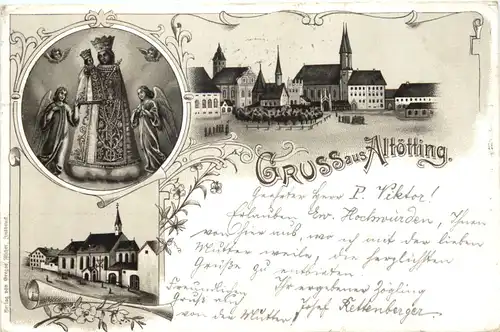 GRUSS aus Altötting.
Geehrter Herr P. Viktor!
Erlauben Ew. Hochwürden, Ihnen
von hier aus, wo ich mit der lieben
Mutter weile, die herzlichsten
Grüße zu entbieten
Ihr ergebener Zögling
Josef Rettenberger
Freundlichen
Gruß auch
von der Mutter!